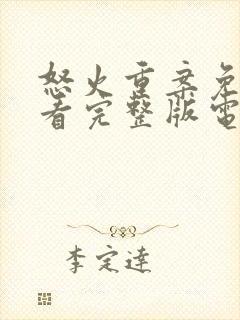 怒火重案免
看完整版電
李定達